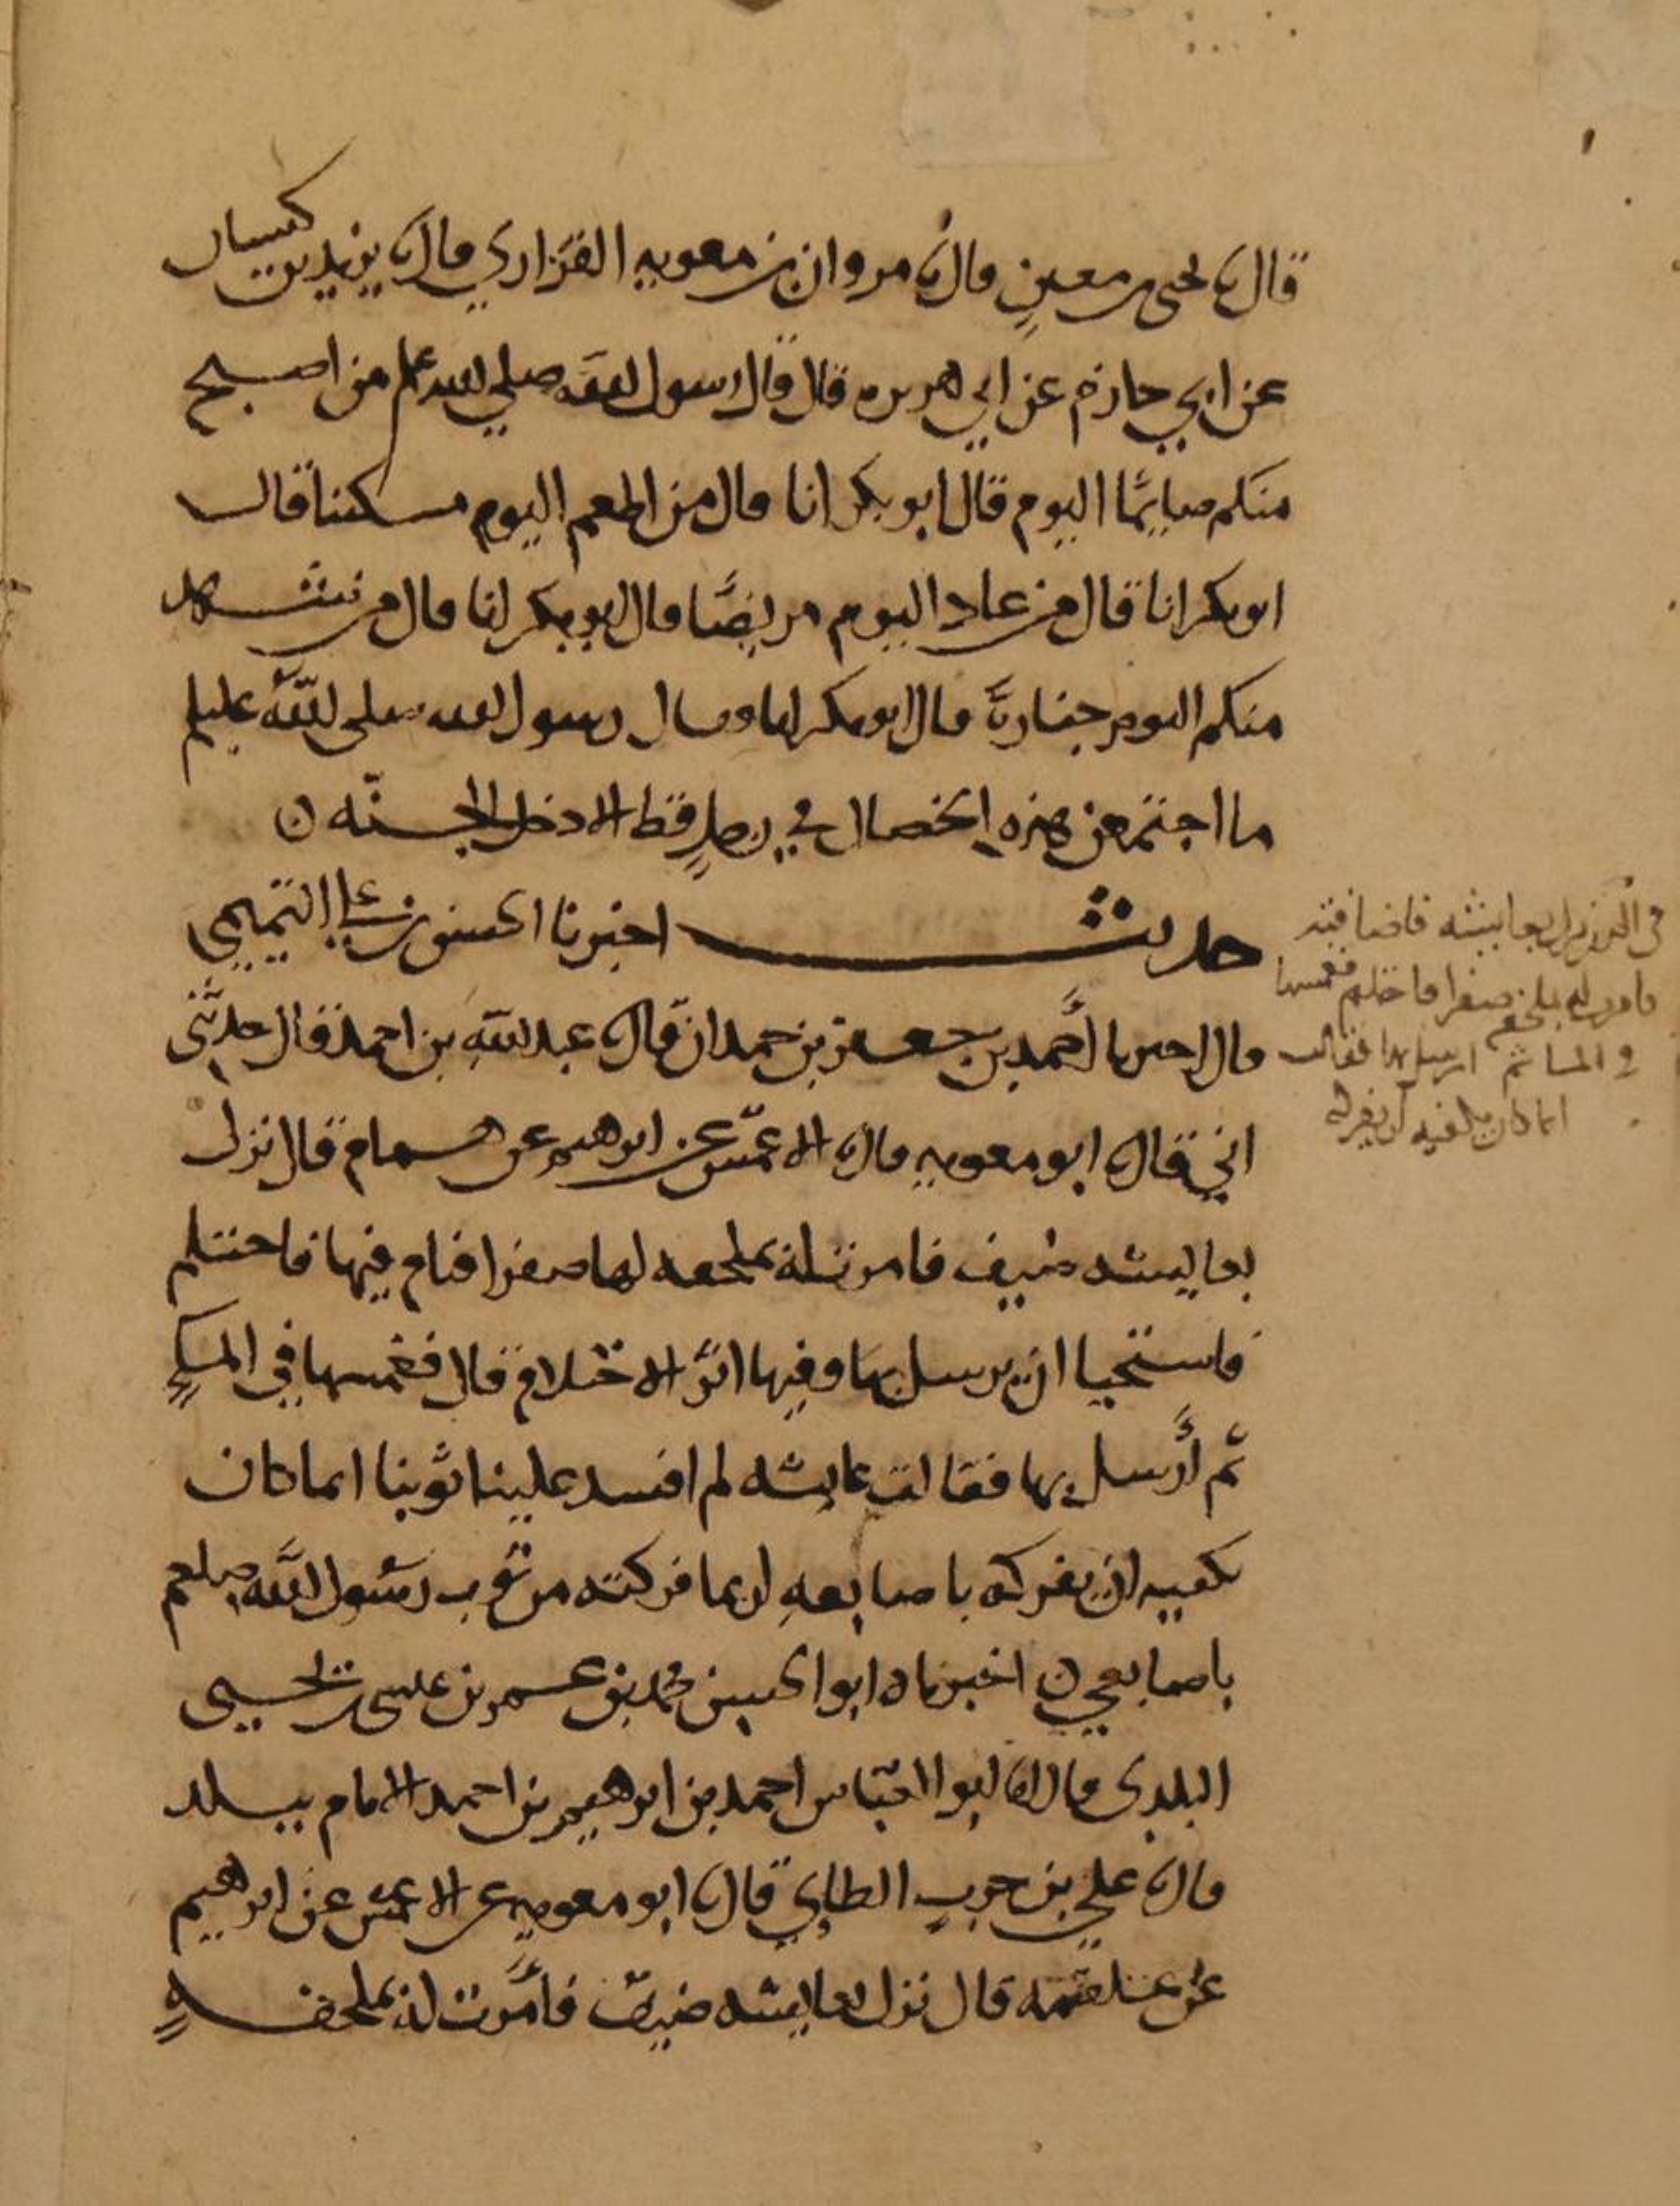 قال ثا يحيى بن معين قال ثا مروان بن معويه الفزاري قال ثا يزيد بن كيسان
عن ابي حازم عن ابي هريره قال قال رسول الله صلي الله علم من اصبح
منكم صايمًا اليوم قال ابو بكر انا قال من اطعم اليوم مسكينا قال
ابو بكر انا قال من عاد اليوم مريضًا قال ابو بكر انا قال من شهد
منكم اليوم جنازة قال ابو بكر انا وقال رسول الله صلى الله عليلم
ما اجتمعن هذه الخصال في رجلٍ قط الا دخل الجنّه ن
حديث اخبرنا الحسن بن علي التميمي
قال اخبرنا أحمد بن جعفر بن حمدان قال ثا عبد الله بن احمد قال حدثني
ابي قال ثا ابو معويه قال ثا الاعمش عن ابرهيم عن همام قال نزل
بعايشه ضيف فامرت له بملحفه لها صفرا فنام فيها فاحتلم
فاستحيا ان يرسل بها وفيها اثر الاحتلام قال فغمسها في الماء
ثم أرسل بها فقالت عايشه لم افسد علينا ثوبنا انما كان
يكفيه ان يفركه باصابعه ربما فركته من ثوب رسول الله صلعم
باصابعي ن اخبرناه ابو الحسين محمد بن عمر بن عيسى بن يحيى
البلدى قال ثا ابو العباس احمد بن ابرهيم بن احمد الامام ببلد
قال ثا علي بن حرب الطاي قال ثا ابو معويه عن الاعمش عن ابرهيم
عن علقمه قال نزل بعايشه ضيف فأمرت له بملحفه
نزل بعايشه فاضافته
فامرت له بملحفه صفرا فاحتلم فغمسها
في الما ثم ارسل بها فقالت
انما كان يكفيه ان يفركه